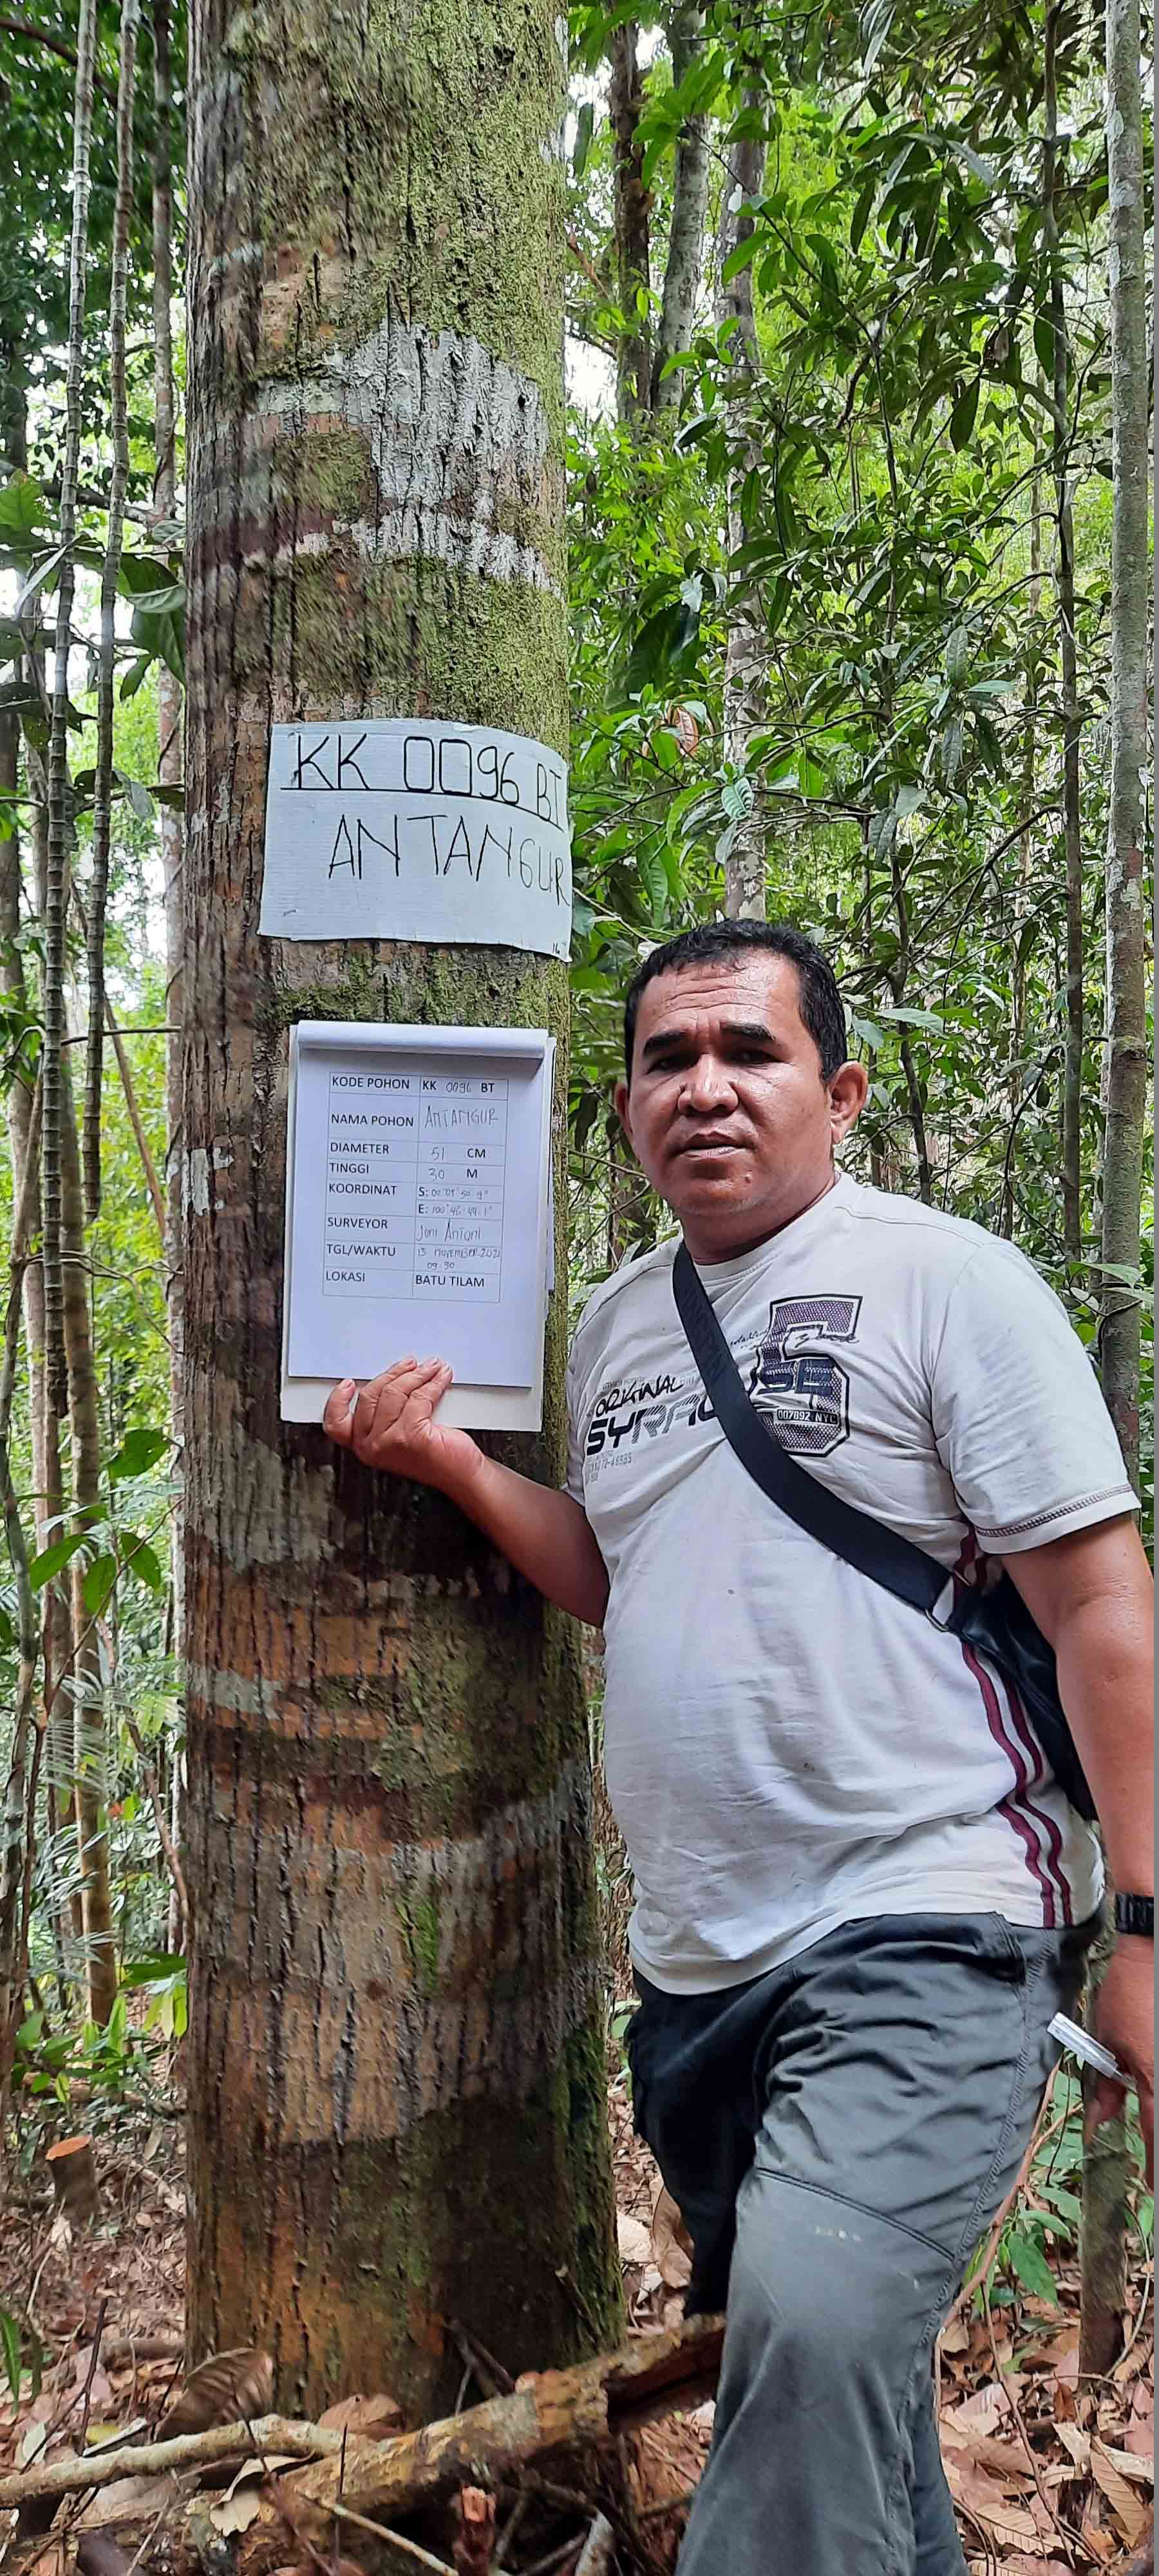 KK 0096 BT
ANTANGUR
KODE POHON KK 0096 BT
NAMA POHON ANTANGUR
DIAMETER 51 CM
TINGGI 30 M
KOORDINAT S:
E: 100° 46' 49.1"
SURVEYOR Joni Antoni
TGL/WAKTU 13 NOVEMBER 2021
09.30
LOKASI BATU TILAM
ORIGINAL
SYRAC USE
007092 NYC